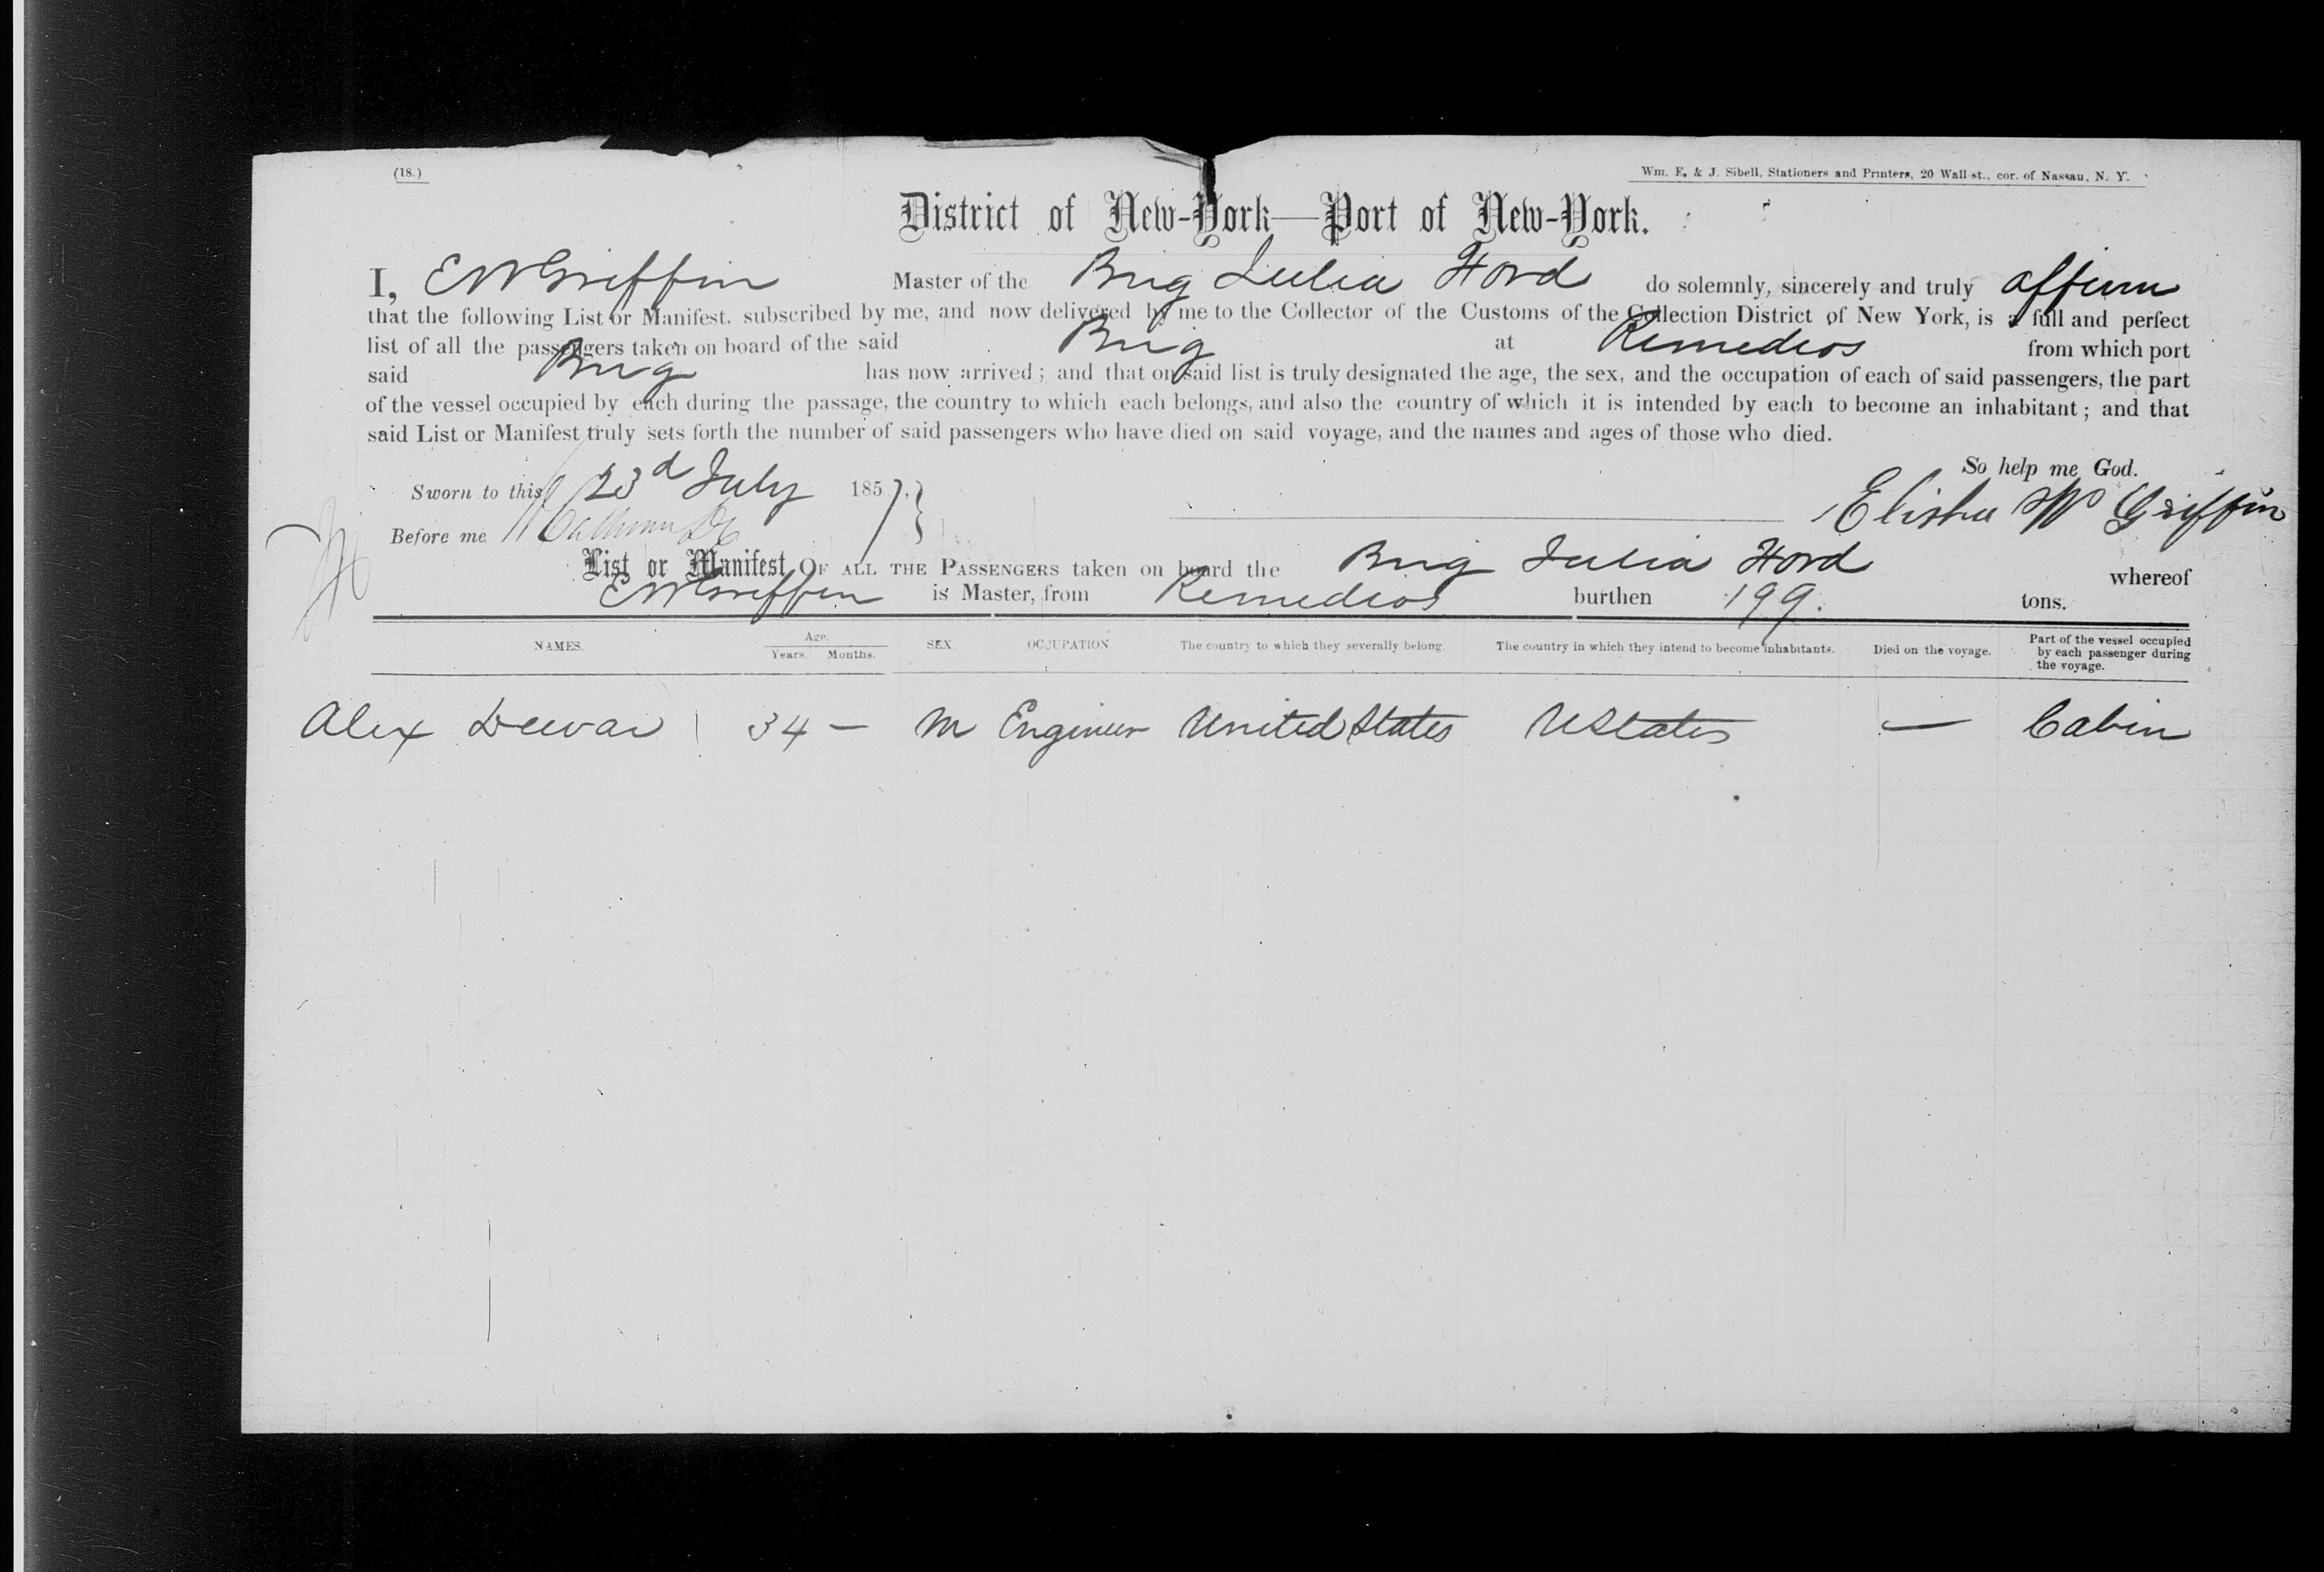 (18.)
Wm. E. & J. Sibell, Stationers and Printers, 20 Wall-st., cor. of Nassau, N. Y.
District of New-York—Port of New-York.
I, E W Griffin Master of the Brig Julia Ford do solemnly, sincerely and truly affirm
that the following List or Manifest, subscribed by me, and now delivered by me to the Collector of the Customs of the Collection District of New York, is a full and perfect
list of all the passengers taken on board of the said Brig at Remedios from which port
said Brig has now arrived; and that on said list is truly designated the age, the sex, and the occupation of each of said passengers, the part
of the vessel occupied by each during the passage, the country to which each belongs, and also the country of which it is intended by each to become an inhabitant; and that
said List or Manifest truly sets forth the number of said passengers who have died on said voyage, and the names and ages of those who died.
So help me God.
Sworn to this 23d July 1857,
Elisha W Griffin
Before me
List or Manifest OF ALL THE PASSENGERS taken on board the Brig Julia Ford whereof
E W Griffin is Master, from Remedios burthen 199. tons.
NAMES. Age. Years. Months. SEX. OCCUPATION The country to which they severally belong. The country in which they intend to become inhabitants. Died on the voyage. Part of the vessel occupied by each passenger during the voyage.
Alex Dewar 34 — M Engineer United States U States — Cabin